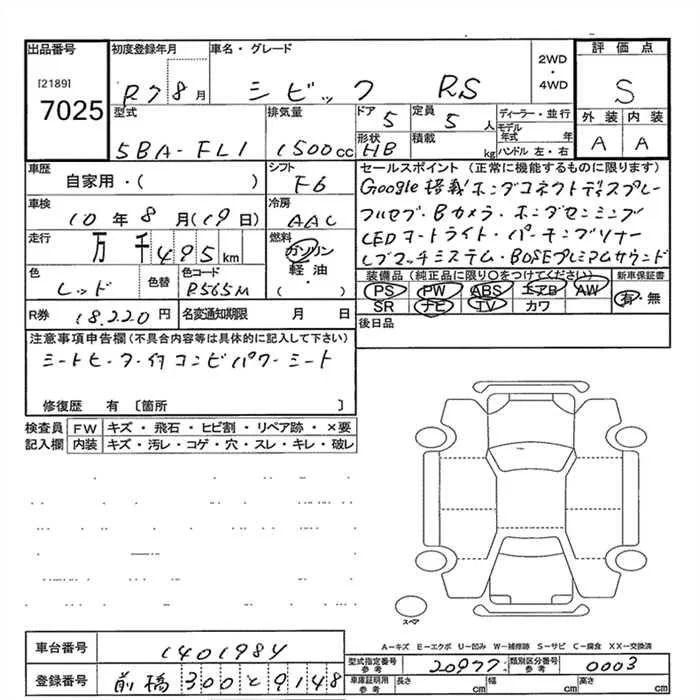 出品番号
[2189]
7025
初度登録年月
R7 8月
車名・グレード
シビック RS
2WD・4WD
評価点
S
外装 内装
A A
型式
5BA-FL1
排気量
1500cc
ドア 5
形状 HB
定員 5人
積載 kg
ディーラー・並行
モデル年式 年
ハンドル 左・右
車歴
自家用・( )
シフト
F6
車検
10年8月(19日)
冷房
AAC
走行
万千495km
燃料
ガソリン
軽油
・( )
色
レッド
色替
色コード
R565M
R券 18.220円
名変通知期限 月 日
セールスポイント(正常に機能するものに限ります)
Google搭載ホンダコネクトディスプレー
フルセグ・Bカメラ・ホンダセンシング
LEDオートライト・パーキングソナー
レブマッチシステム・BOSEプレミアムサウンド
装備品(純正品に限り○をつけてください)
PS PW ABS エアB AW
SR ナビ TV カワ
新車保証書
有・無
後日品
注意事項申告欄(不具合内容等は具体的に記入して下さい)
シートヒーター付コンビパワーシート
修復歴 有〔箇所 〕
検査員記入欄
FW キズ・飛石・ヒビ割・リペア跡・×要
内装 キズ・汚レ・コゲ・穴・スレ・キレ・破レ
スペア
A-キズ E-エクボ U-凹み W-補修跡 S-サビ C-腐食 XX-交換済
車台番号 1401984
登録番号 前橋300と9148
型式指定番号 参考 20977
類別区分番号 参考 0003
車庫証明用 参考 長さ cm 幅 cm 高さ cm